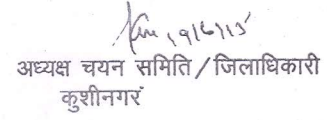 19/6/15
अध्यक्ष चयन समिति / जिलाधिकारी
कुशीनगर